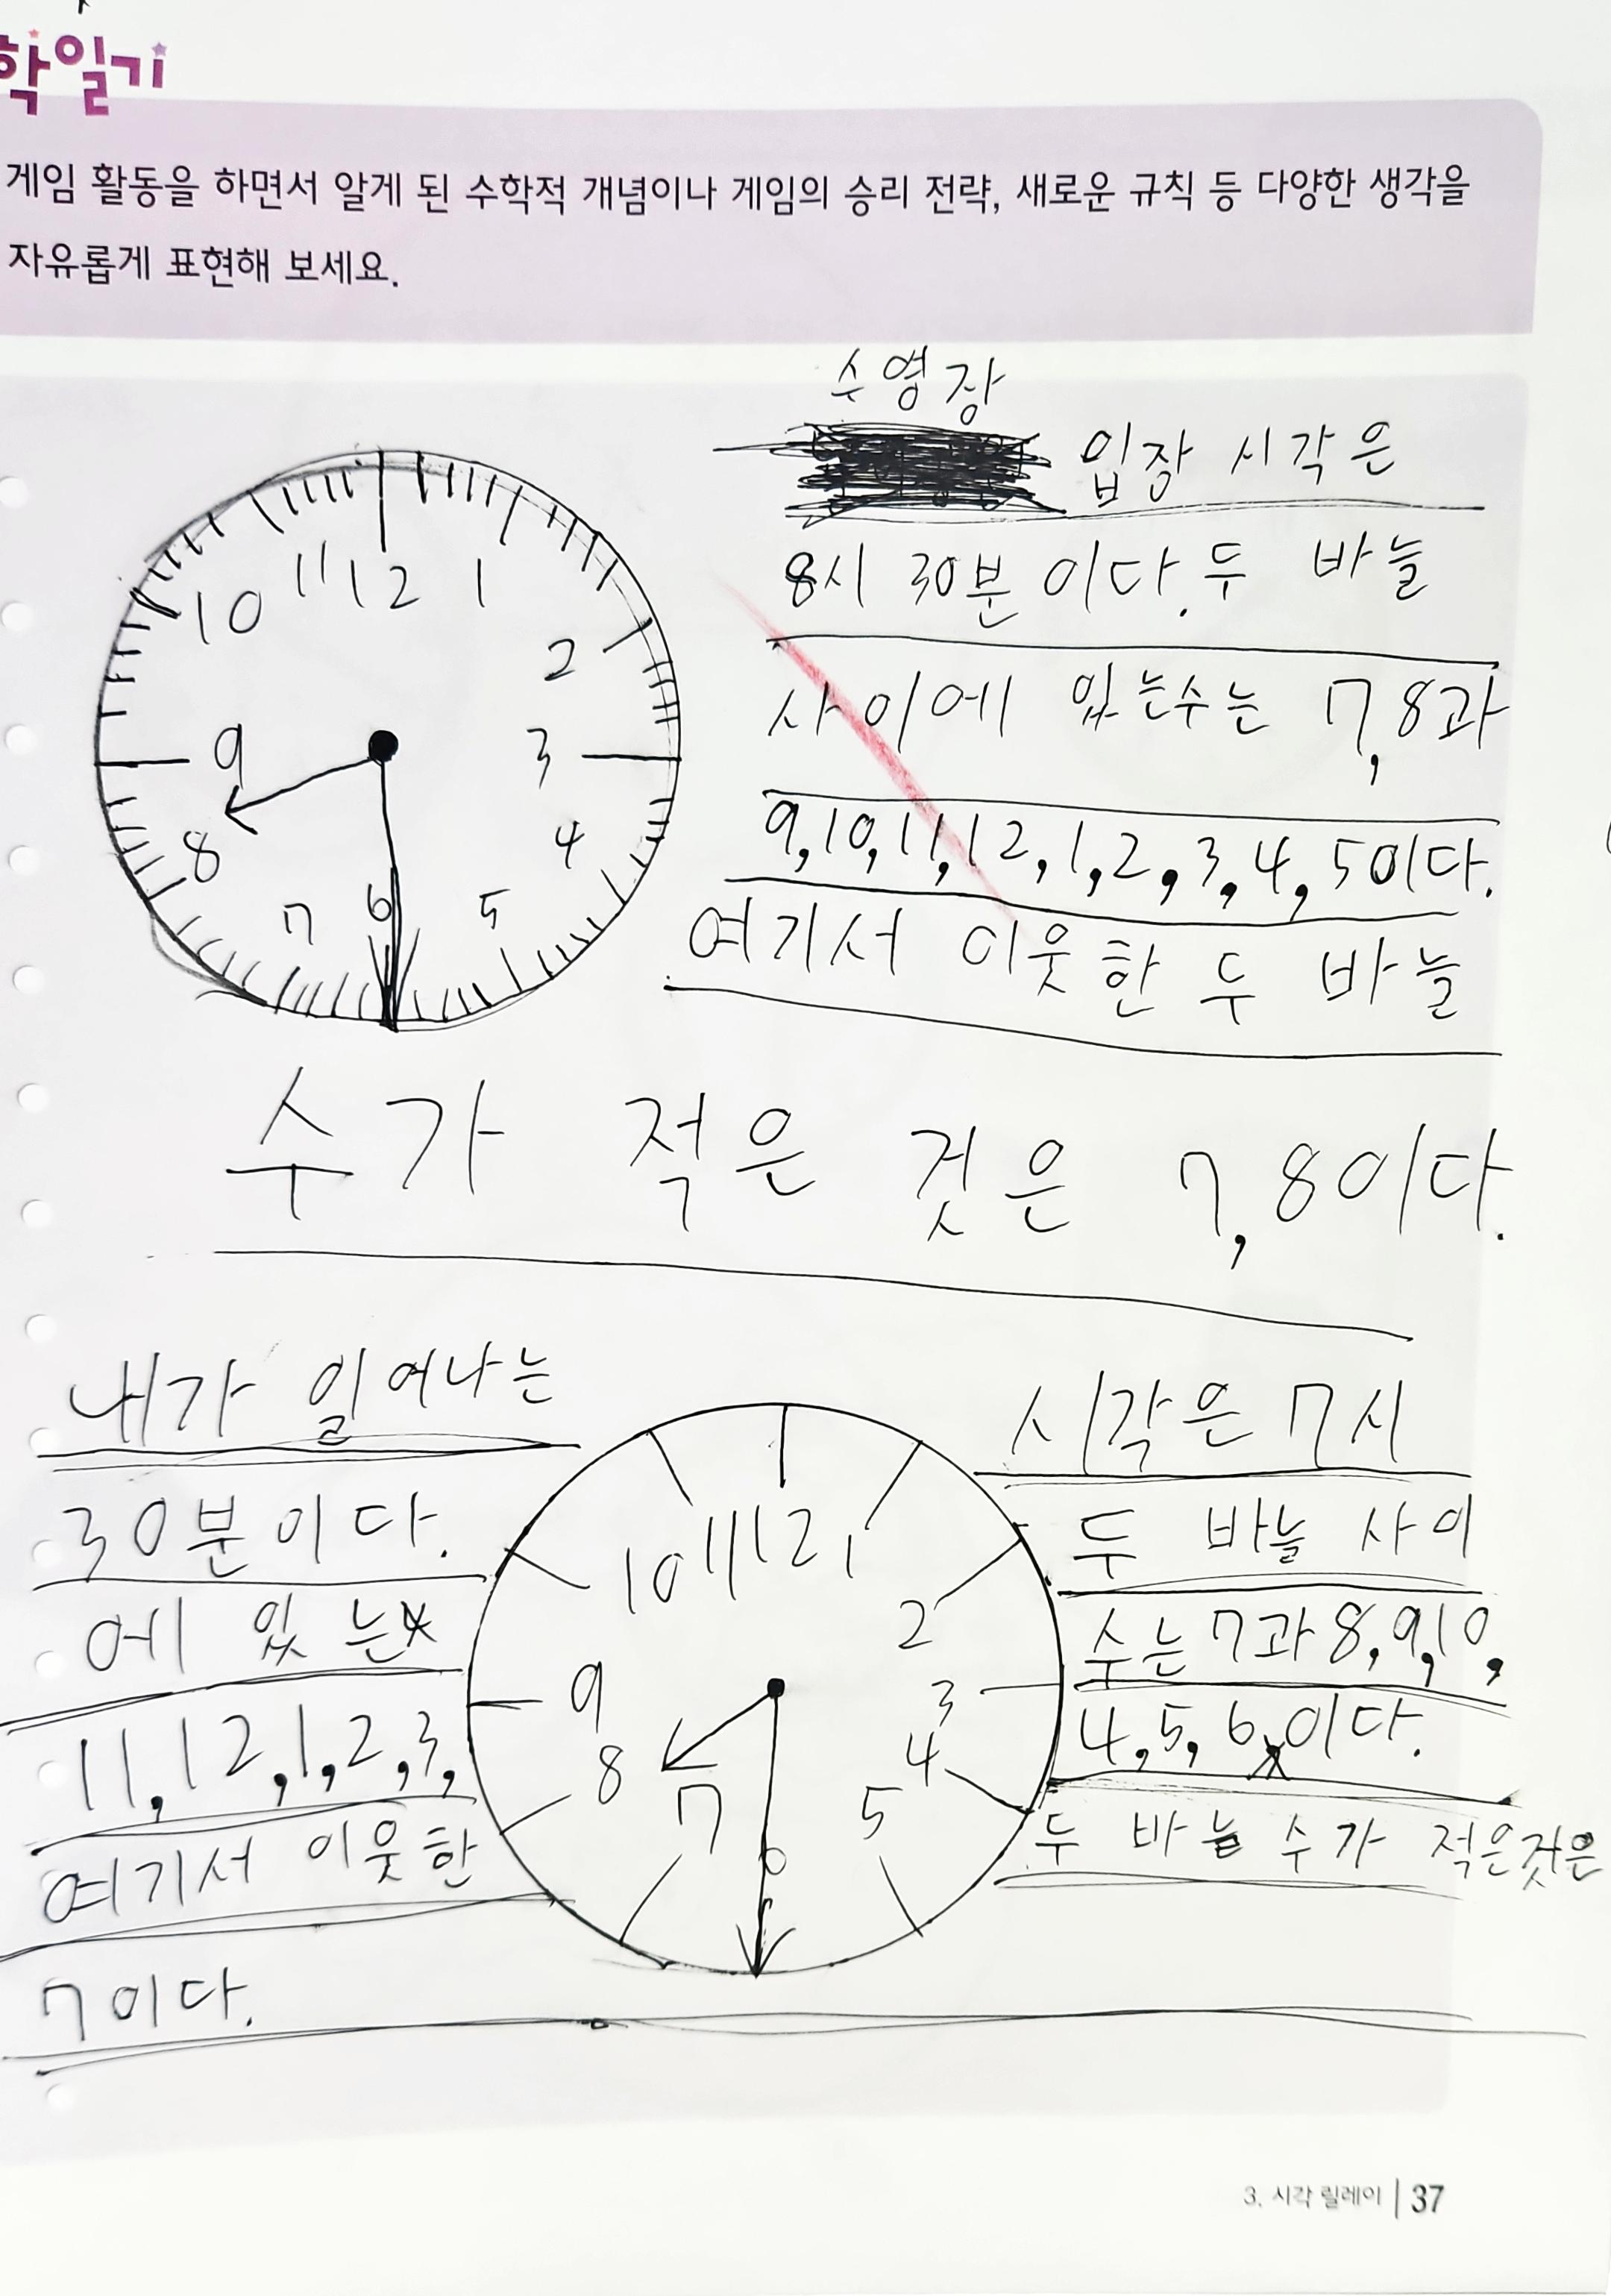 학일기
게임 활동을 하면서 알게 된 수학적 개념이나 게임의 승리 전략, 새로운 규칙 등 다양한 생각을
자유롭게 표현해 보세요.
수영장
입장 시각은
8시 30분 이다. 두 바늘
사이에 있는수는 7, 8과
9, 10, 11, 12, 1, 2, 3, 4, 5이다.
여기서 이웃한 두 바늘
수가 적은 것은 7, 8이다.
12 1 2 3 4 5 6 7 8 9 10 11
내가 일어나는 시각은 7시
30분이다. 두 바늘 사이
에 있는 수는 7과 8, 9, 10,
11, 12, 1, 2, 3, 4, 5, 6이다.
여기서 이웃한 두 바늘 수가 적은것은
7이다.
12 1 2 3 4 5 6 7 8 9 10 11
3. 시각 릴레이 | 37